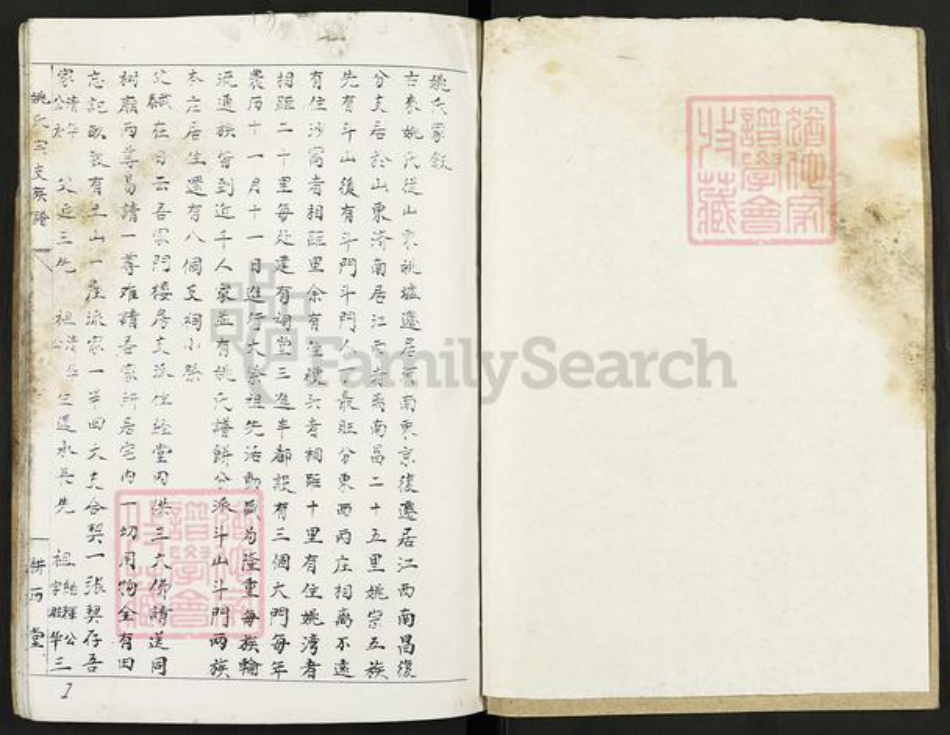 姚氏家叙
古来姚氏從山東姚墟遷居河南東京復遷居江西南昌復
分支居於山東济南居江西南昌二十五里姚宗五族
先有斗山後有斗門斗門人丁最旺分東西兩庄相离不遠
有住沙窩者相距里余有住楼头者相距十里有住姚湾者
相距二十里每处建有祠堂三進半都設有三個大門每年
農历十一月十一日進行大祭祖先活動感为隆重每族輪
流通族皆到近千人家並有姚氏譜餅分派斗山斗門两族
本庄居住還有八個支祠小祭
父諴在日云吾家門楼房支派住经堂内供三大佛請送同
树廟两尊易請一尊难請吾家所居宅内一切用物全有田
忘記畝数有土山一座派家一半四大支合契一張契存吾
家 父近三先 祖 先 祖 三
姚氏宗支族譜
耕 堂
1
FamilySearch
譜學會
收藏
譜學會
收藏